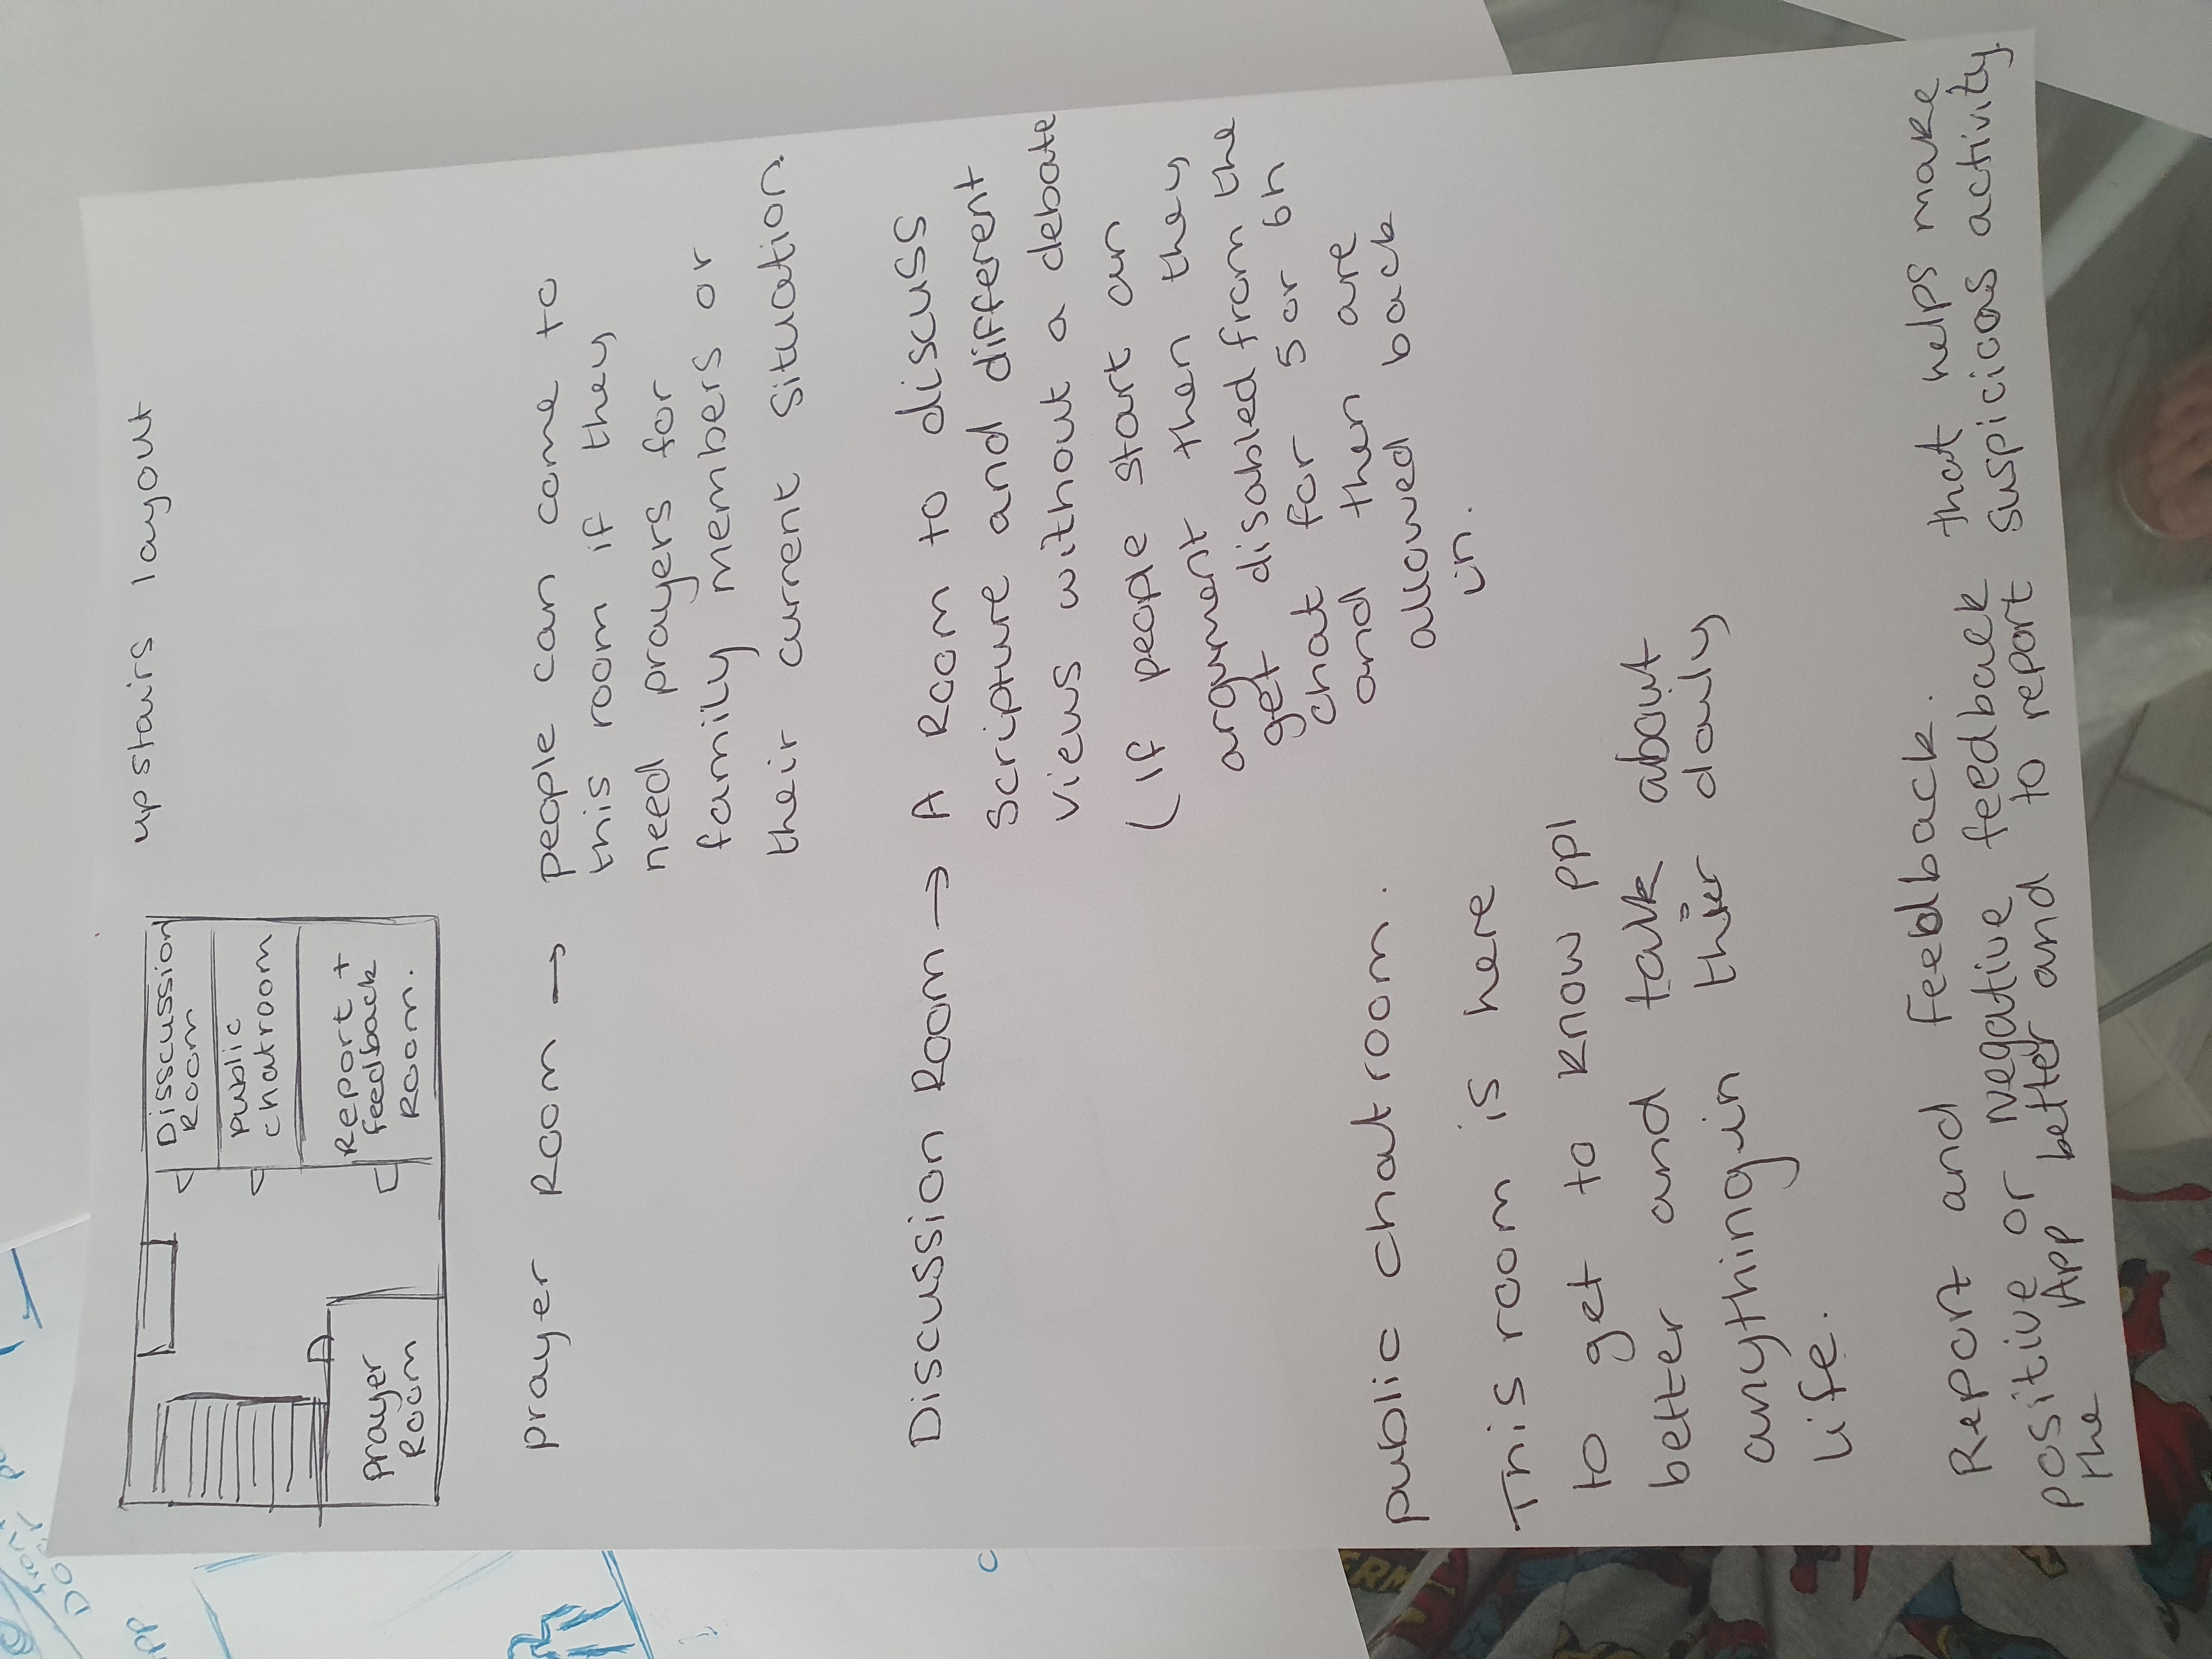 upstairs layout
Disscussion
Room
public
chatroom
Report +
feedback
Room.
prayer
Room
prayer Room → people can come to
this room if they
need prayers for
family members or
their current situation.
Discussion Room → A Room to discuss
Scripture and different
views without a debate
(if people start an
argument then they
get disabled from the
chat for 5 or 6h
and then are
allowed back
in.
public chatroom.
This room is here
to get to know ppl
better and talk about
anything in their daily
life.
Report and Feedback.
positive or negative feedback that helps make
the App better and to report suspicious activity.